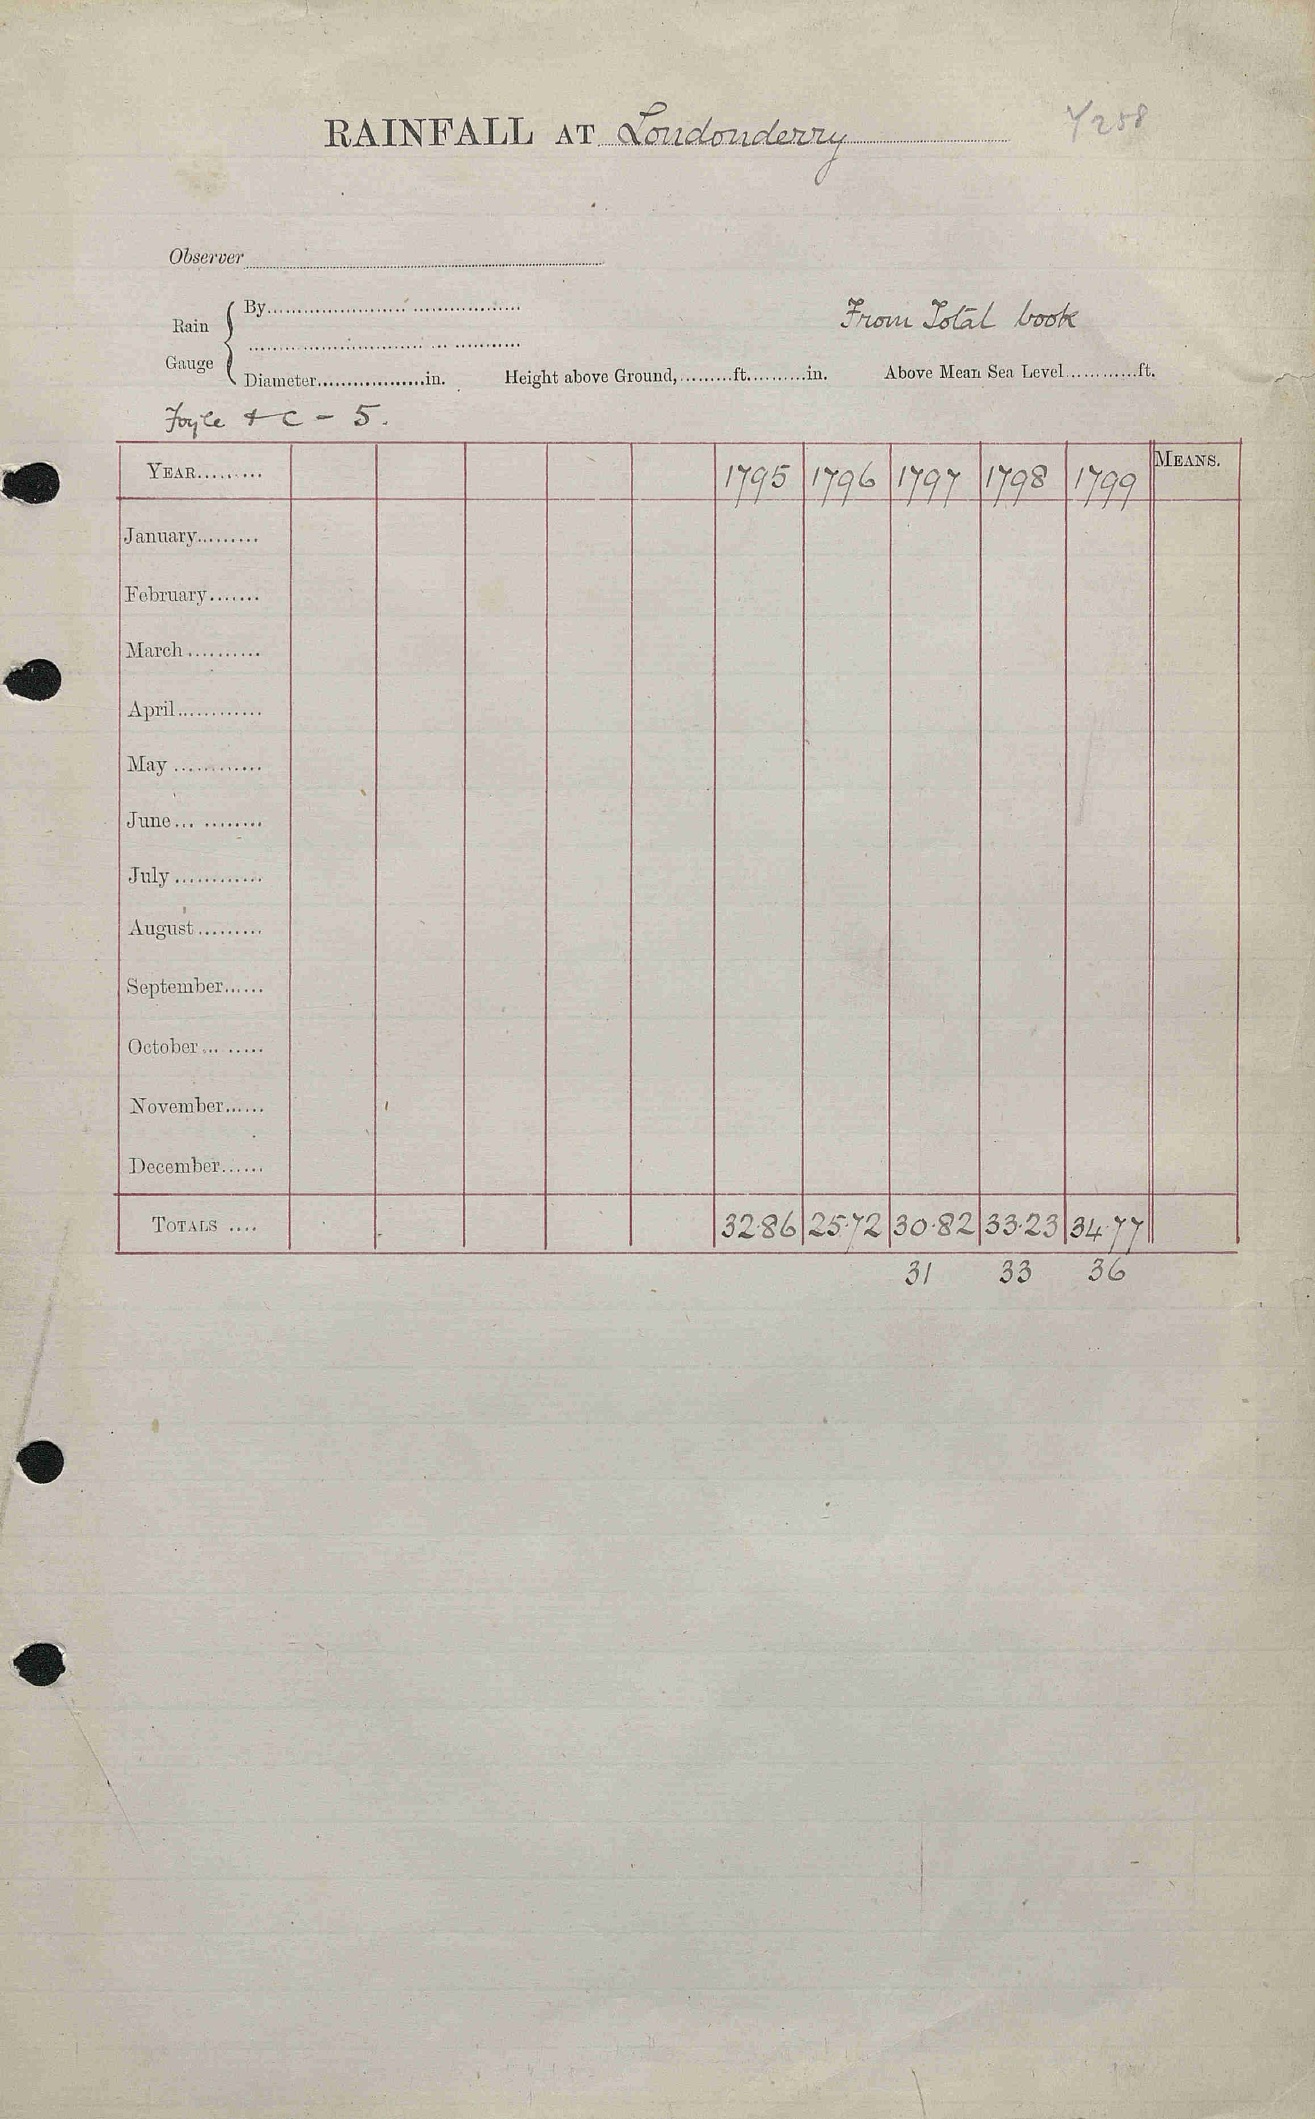 RAINFALL AT Londonderry Y258
Observer
Rain Gauge { By
Diameter in. Height above Ground, ft. in. Above Mean Sea Level ft.
From Total book
Foyle & C - 5.
YEAR 1795 1796 1797 1798 1799 MEANS.
January
February
March
April
May
June
July
August
September
October
November
December
TOTALS 32.86 25.72 30.82 33.23 34.77
31 33 36